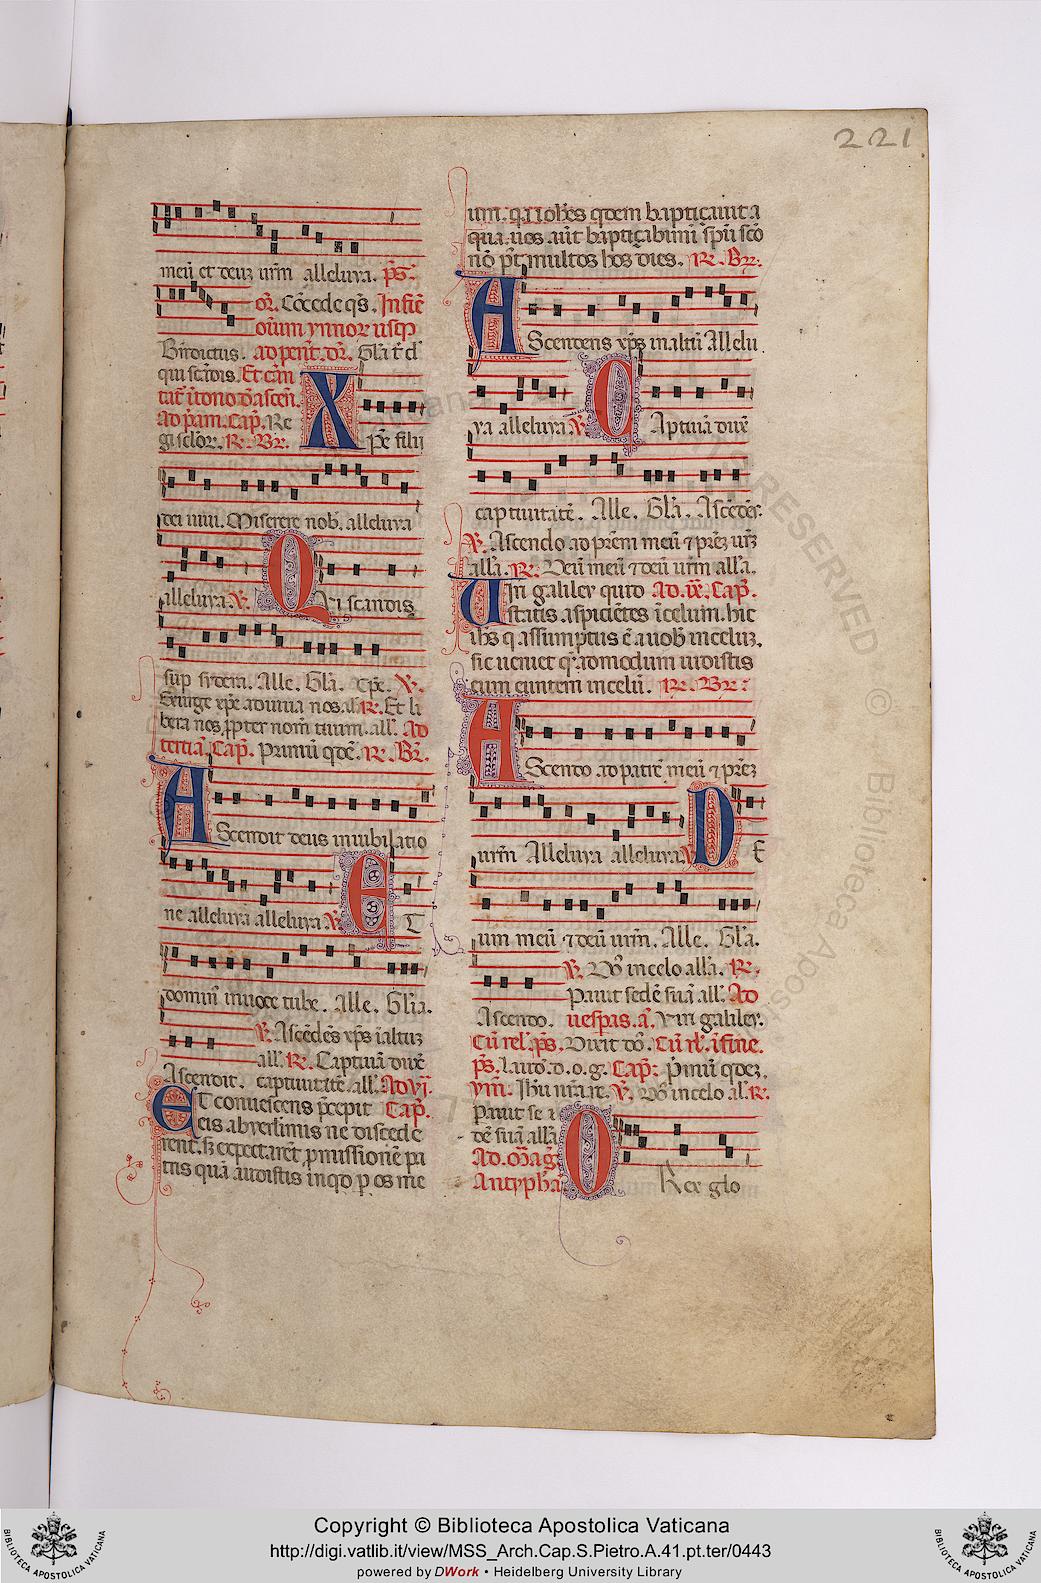 221
meū et deuʒ ur̄m alleluya. p̄s.
or̄. Cōcede qs̄. In fīe
oīum ynnoꝝ usqꝫ
ad pent̄. dr̄. Gl̄a t̄ d'
qui scādis. Et cām
Ad p̄am. Cap̄. Re
gi sclōꝝ. R. Br̄. XPe filij
dei uiui. Miserere nob̄. alleluya
alleluya. V. Qui scandis
sup sydera. Alle. Gl̄a. Xp̄e. V.
Exurge xp̄e adiuua nos. al'. R. Et li
bera nos p̄pter nom̄ tuum. all'. Ad
tertiā. Cap̄. Primū qd̄e. R. Br̄.
AScendit deus in iubilatio
ne alleluya alleluya. V. ET
domin' in uoce tube. Alle. Gl̄ia.
V. Ascēdēs xp̄s ī altuʒ
all'. R. Captiuā dux̄
Ascendit. captiuitatē. all'. Ad VI.
ET conuescens p̄cepit Cap̄.
eis ab yerl'imis ne discede
rent. s̄ expectarēt p̄missionē pa
tris quā audistis inqd̄ p os me
um. qꝛ ioh̄es qdem baptiçauit a
qua. uos aūt baptiçabimī sp̄u scō
nō p̄t multos hos dies. R. Br̄.
AScendens xp̄s in altū Allelu
ya alleluya. V. CAptiuā dux̄
captiuitatē. Alle. Gl̄a. Ascēdēs.
V. Ascendo ad p̄rem meū ⁊ p̄reʒ ur̄ʒ
all'a. R. Deū meū ⁊ deū ur̄m all'a.
VIri galiley quid Ad IX. Cap̄.
statis aspiciētes ī celum. hic
ih̄s q assumptus ē a uob̄ in celuʒ.
sic ueniet qēadmodum uidistis
eum euntem in celū. R. Br̄.
AScendo ad patrē meū ⁊ p̄reʒ
ur̄m Alleluya alleluya. V. DE
um meū ⁊ deū ur̄m. Alle. Gl̄a.
V. Dn̄s in celo all'a. R.
Pauit sedē suā all'. Ad
Ascendo. uesp̄as. ā. Viri galiley.
Cū rel'. ps̄. Dixit dn̄s. Cū rl'. ī fine.
ps̄. Laud̄. d. o. g. Cap̄. Pimū qdeʒ.
ym̄. Ih̄u nr̄a re. V. Dn̄s in celo al'. R.
Pauit se ī
dē suā all'a
Ad. Maḡ.
Antyph̄a O Rex glo
Copyright © Biblioteca Apostolica Vaticana
http://digi.vatlib.it/view/MSS_Arch.Cap.S.Pietro.A.41.pt.ter/0443
powered by DWork • Heidelberg University Library
BIBLIOTECA APOSTOLICA VATICANA
BIBLIOTECA APOSTOLICA VATICANA